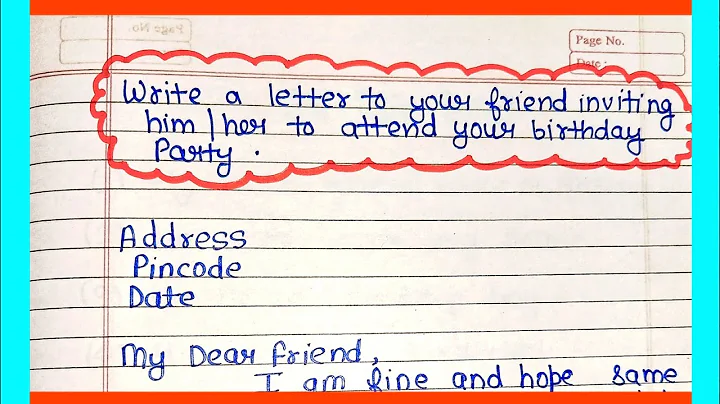 Page No.
Page No.
Date:
Write a letter to your friend inviting
him/her to attend your birthday
Party.
Address
Pincode
Date
My Dear friend,
I am fine and hope same